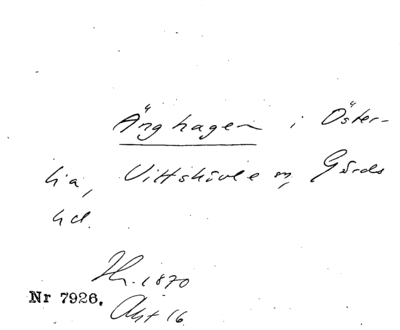 Änghagen i Öster-
lia, Vittskövle sn, Gärds
hd.
Hr. 1870
Nr 7926. Akt 16